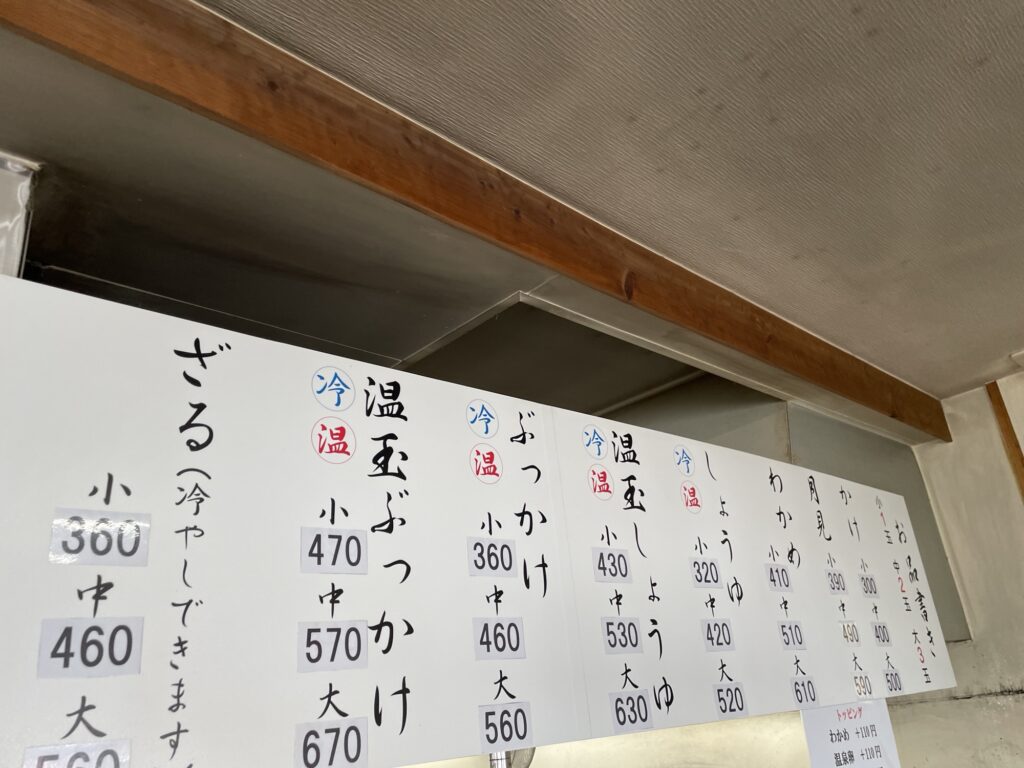 お品書き
小1玉 中2玉 大3玉
かけ
小 300
中 400
大 500
月見
小 390
中 490
大 590
わかめ
小 410
中 510
大 610
しょうゆ
冷 温
小 320
中 420
大 520
温玉しょうゆ
冷 温
小 430
中 530
大 630
ぶっかけ
冷 温
小 360
中 460
大 560
温玉ぶっかけ
冷 温
小 470
中 570
大 670
ざる(冷やしできます
小 360
中 460
大 560
トッピング
わかめ +110円
温泉卵 +110円